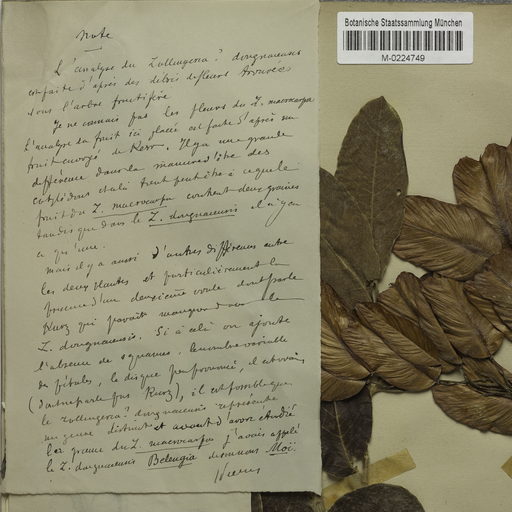 Botanische Staatssammlung München
M-0224749
Note
L'analyse du Zollingeria? dongnaiensis
est faite d'après des débris de fleurs trouvés
sous l'arbre fructifère
Je ne connais pas les fleurs du Z. macrocarpa
L'analyse du fruit ici placée est faite d'après un
fruit envoyé de Kew. Il y a une grande
différence dans la manière d'être des
cotylédons et cela tient peut être à ce que le
fruit du Z. macrocarpa contient deux graines
tandis que dans le Z. dongnaiensis il n'y en
a qu'une.
Mais il y a aussi d'autres différences entre
les deux plantes et particulièrement la
présence d'un deuxième ovule dont parle
Kurz qui paraît manquer dans le
Z. dongnaiensis. Si à cela on ajoute
l'absence de squames, le nombre variable
de pétales, le disque
(dont parle pas Kurz), il est possible que
le Zollingeria? dongnaiensis représente
un genre distinct et avant d'avoir étudié
les graines du Z. macrocarpa j'avais appelé
le Z. dongnaiensis Belengia du nom Moï.
Pierre